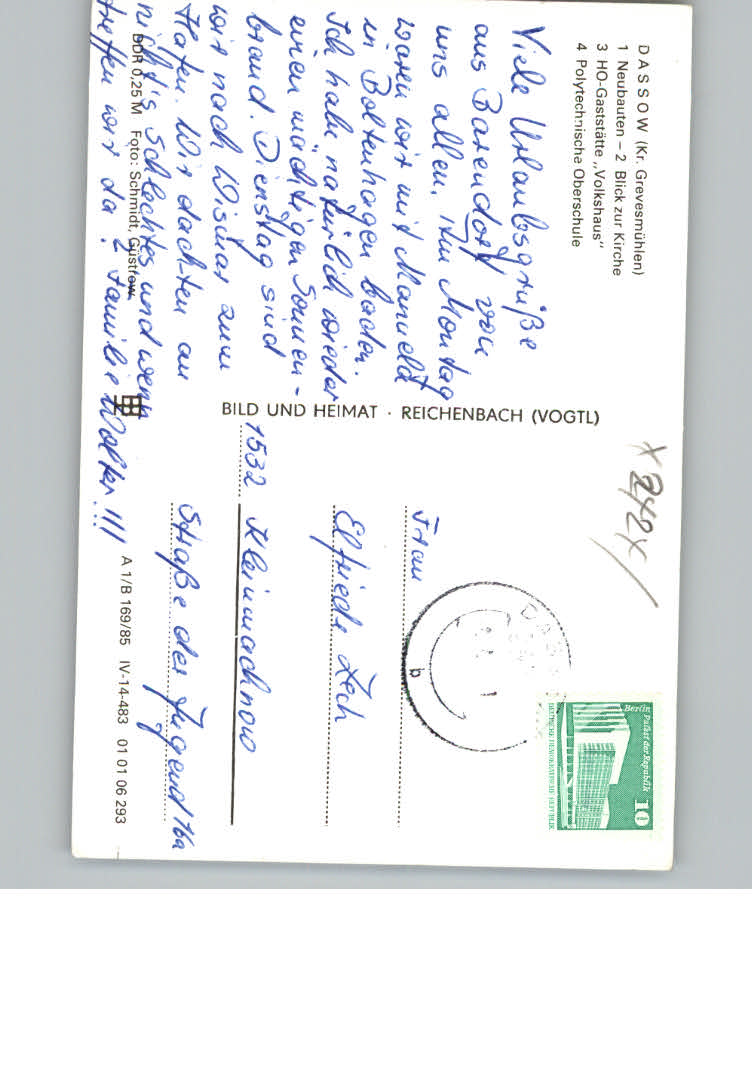 DASSOW (Kr. Grevesmühlen)
1 Neubauten – 2 Blick zur Kirche
3 HO-Gaststätte „Volkshaus"
4 Polytechnische Oberschule
Viele Urlaubsgrüße
aus Barendorf von
uns allen. Am Montag
waren wir mit Manuela
in Boltenhagen baden.
Ich habe natürlich wieder
einen mächtigen Sonnen-
brand. Dienstag sind
wir nach Wismar zum
Hafen. Wir dachten an
nichts Schlechtes und wenn
treffen wir da? Familie Wolter!!!
DDR 0,25 M Foto: Schmidt, Güstrow
BILD UND HEIMAT · REICHENBACH (VOGTL)
A 1/B 169/85 IV-14-483 01 01 06 293
Frau
Elfriede Zech
1532 Kleinmachnow
Straße der Jugend 16a
DASS
b
Berlin Palast der Republik
10
DEUTSCHE DEMOKRATISCHE REPUBLIK